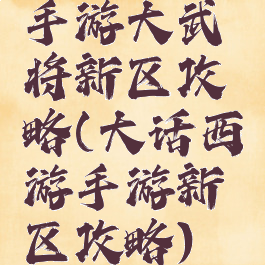 手游大武
将新区攻
略(大话西
游手游新
区攻略)